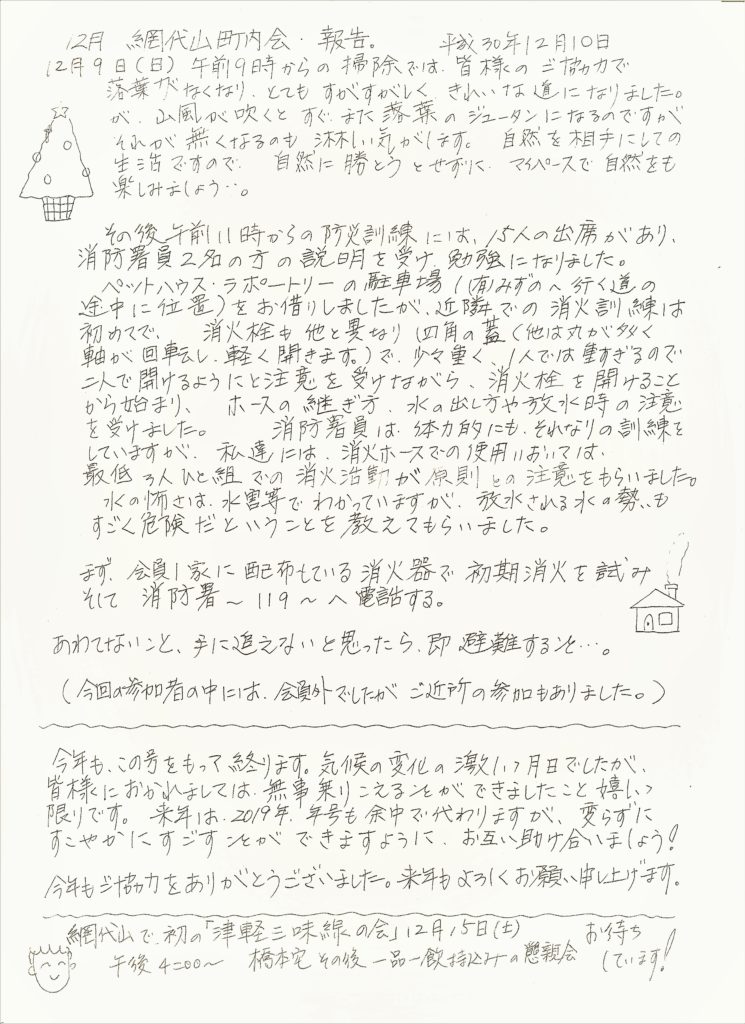 12月 網代山町内会・報告。 平成30年12月10日
12月9日(日) 午前9時からの掃除では、皆様のご協力で
落葉がなくなり、とてもすがすがしく、きれいな道になりました。
が、山風が吹くとすぐ、また落葉のジュータンになるのですが
それが無くなるのも淋しい気がします。 自然を相手にしての
生活ですので、 自然に勝とうとせずに、マイペースで自然をも
楽しみましょう…。
その後午前11時からの防災訓練には、15人の出席があり、
消防署員2名の方の説明を受け、勉強になりました。
ペットハウス・ラポートリーの駐車場((有)みずのへ行く道の
途中に位置)をお借りしましたが、近隣での消火訓練は
初めてで、 消火栓も他と異なり四角の蓋(他は丸が多く
軸が回転し、軽く開きます。)で、少々重く、1人では重すぎるので
二人で開けるようにと注意を受けながら、消火栓を開けること
から始まり、 ホースの継ぎ方、水の出し方や放水時の注意
を受けました。 消防署員は、体力的にも、それなりの訓練を
していますが、私達には、消火ホースでの使用においては、
最低3人ひと組での消火活動が原則との注意をもらいました。
水の怖さは、水害等でわかっていますが、放水される水の勢いも
すごく危険だということを教えてもらいました。
まず、会員1家に配布している消火器で初期消火を試み
そして 消防署〜119〜へ電話する。
あわてないこと、手に追えないと思ったら、即避難すること…。
(今回の参加者の中には、会員外でしたがご近所の参加もありました。)
今年も、この号をもって終ります。気候の変化の激しい月日でしたが、
皆様におかれましては、無事乗りこえることができましたこと嬉しい
限りです。来年は、2019年、年号も余中で代わりますが、変らずに
すこやかにすごすことができますように、お互い助け合いましょう!
今年もご協力をありがとうございました。来年もよろしくお願い申し上げます。
網代山で初の「津軽三味線の会」12月15日(土) お待ち
午後4:00〜 橋本宅 その後 一品一飲持込みの懇親会 しています!